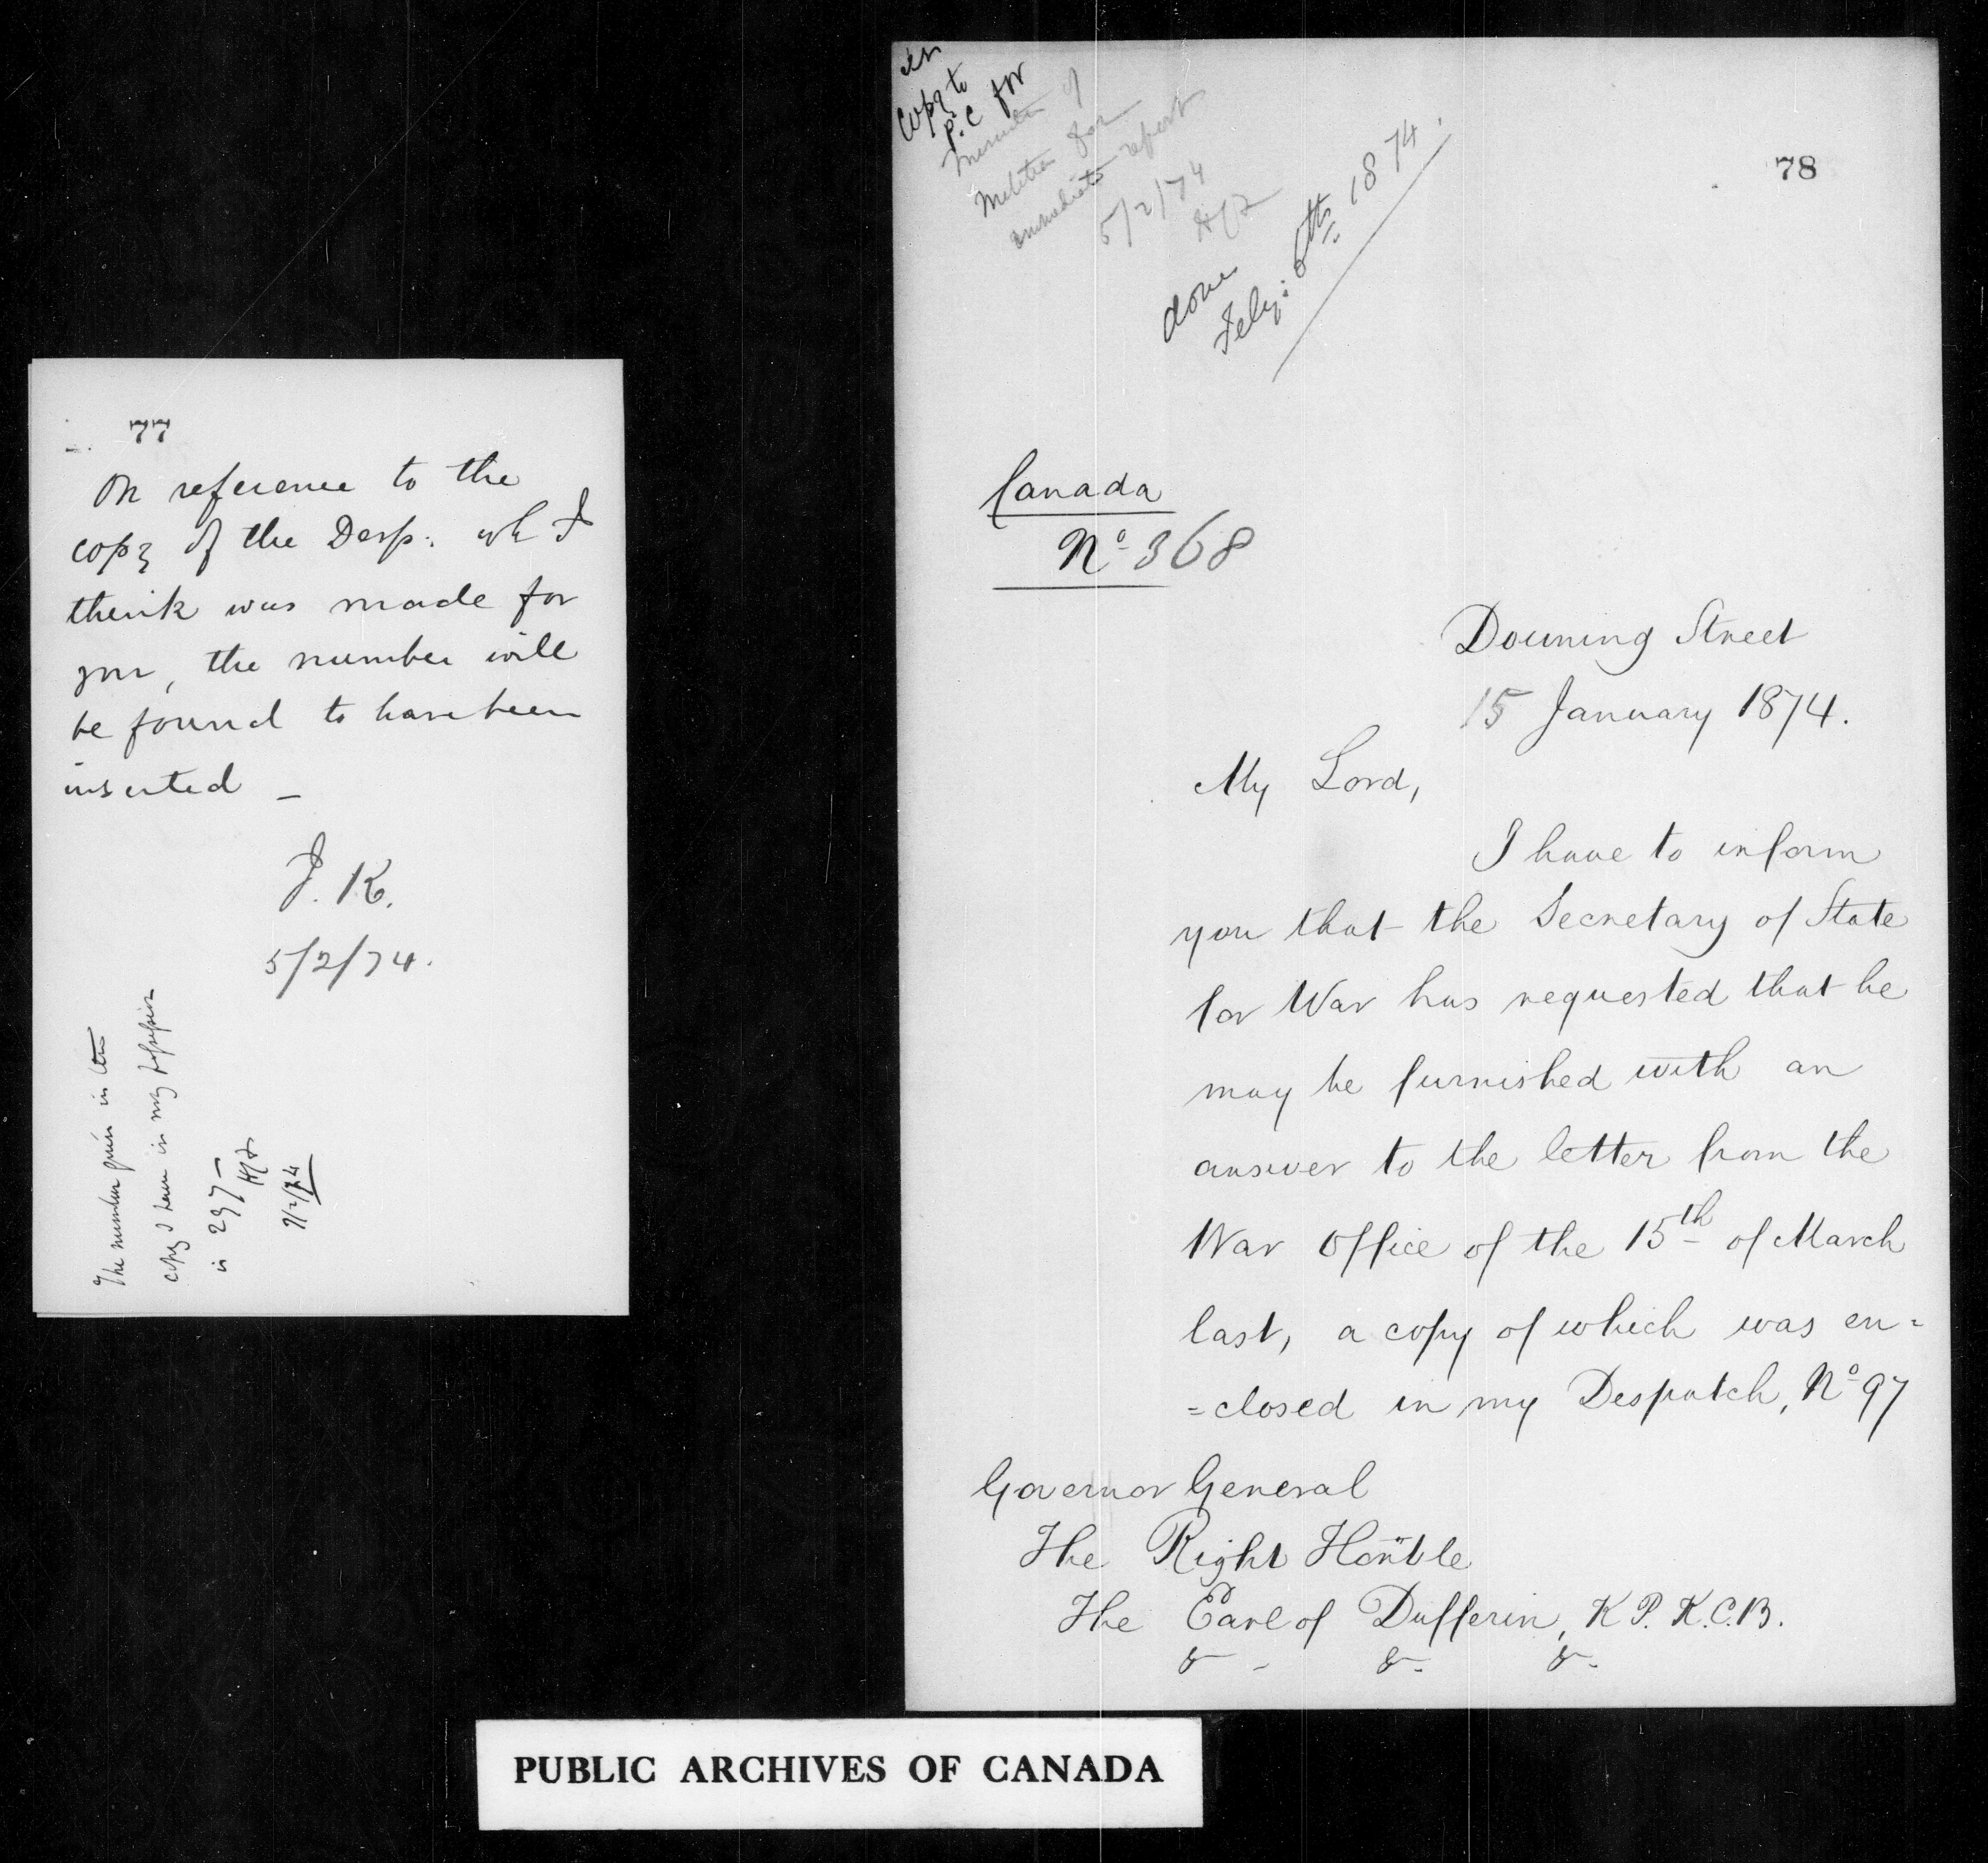 77
On reference to the
copy of the Desp: wh I
think was made for
you, the number will
be found to have been
inserted —
J. K.
5/2/74.
The number given in the
copy I have in my possession
is 297 —
78
Copy to
P.C for
Minister of
Militia for
immediate report
5/2/74
done
Feby: 6th 1874.
Canada
No 368
Downing Street
15 January 1874.
My Lord,
I have to inform
you that the Secretary of State
for War has requested that he
may be furnished with an
answer to the letter from the
War Office of the 15th of March
last, a copy of which was en=
=closed in my Despatch, No 97
Governor General
The Right Honble
The Earl of Dufferin, K P. K.C.B.
& - &. &.
PUBLIC ARCHIVES OF CANADA